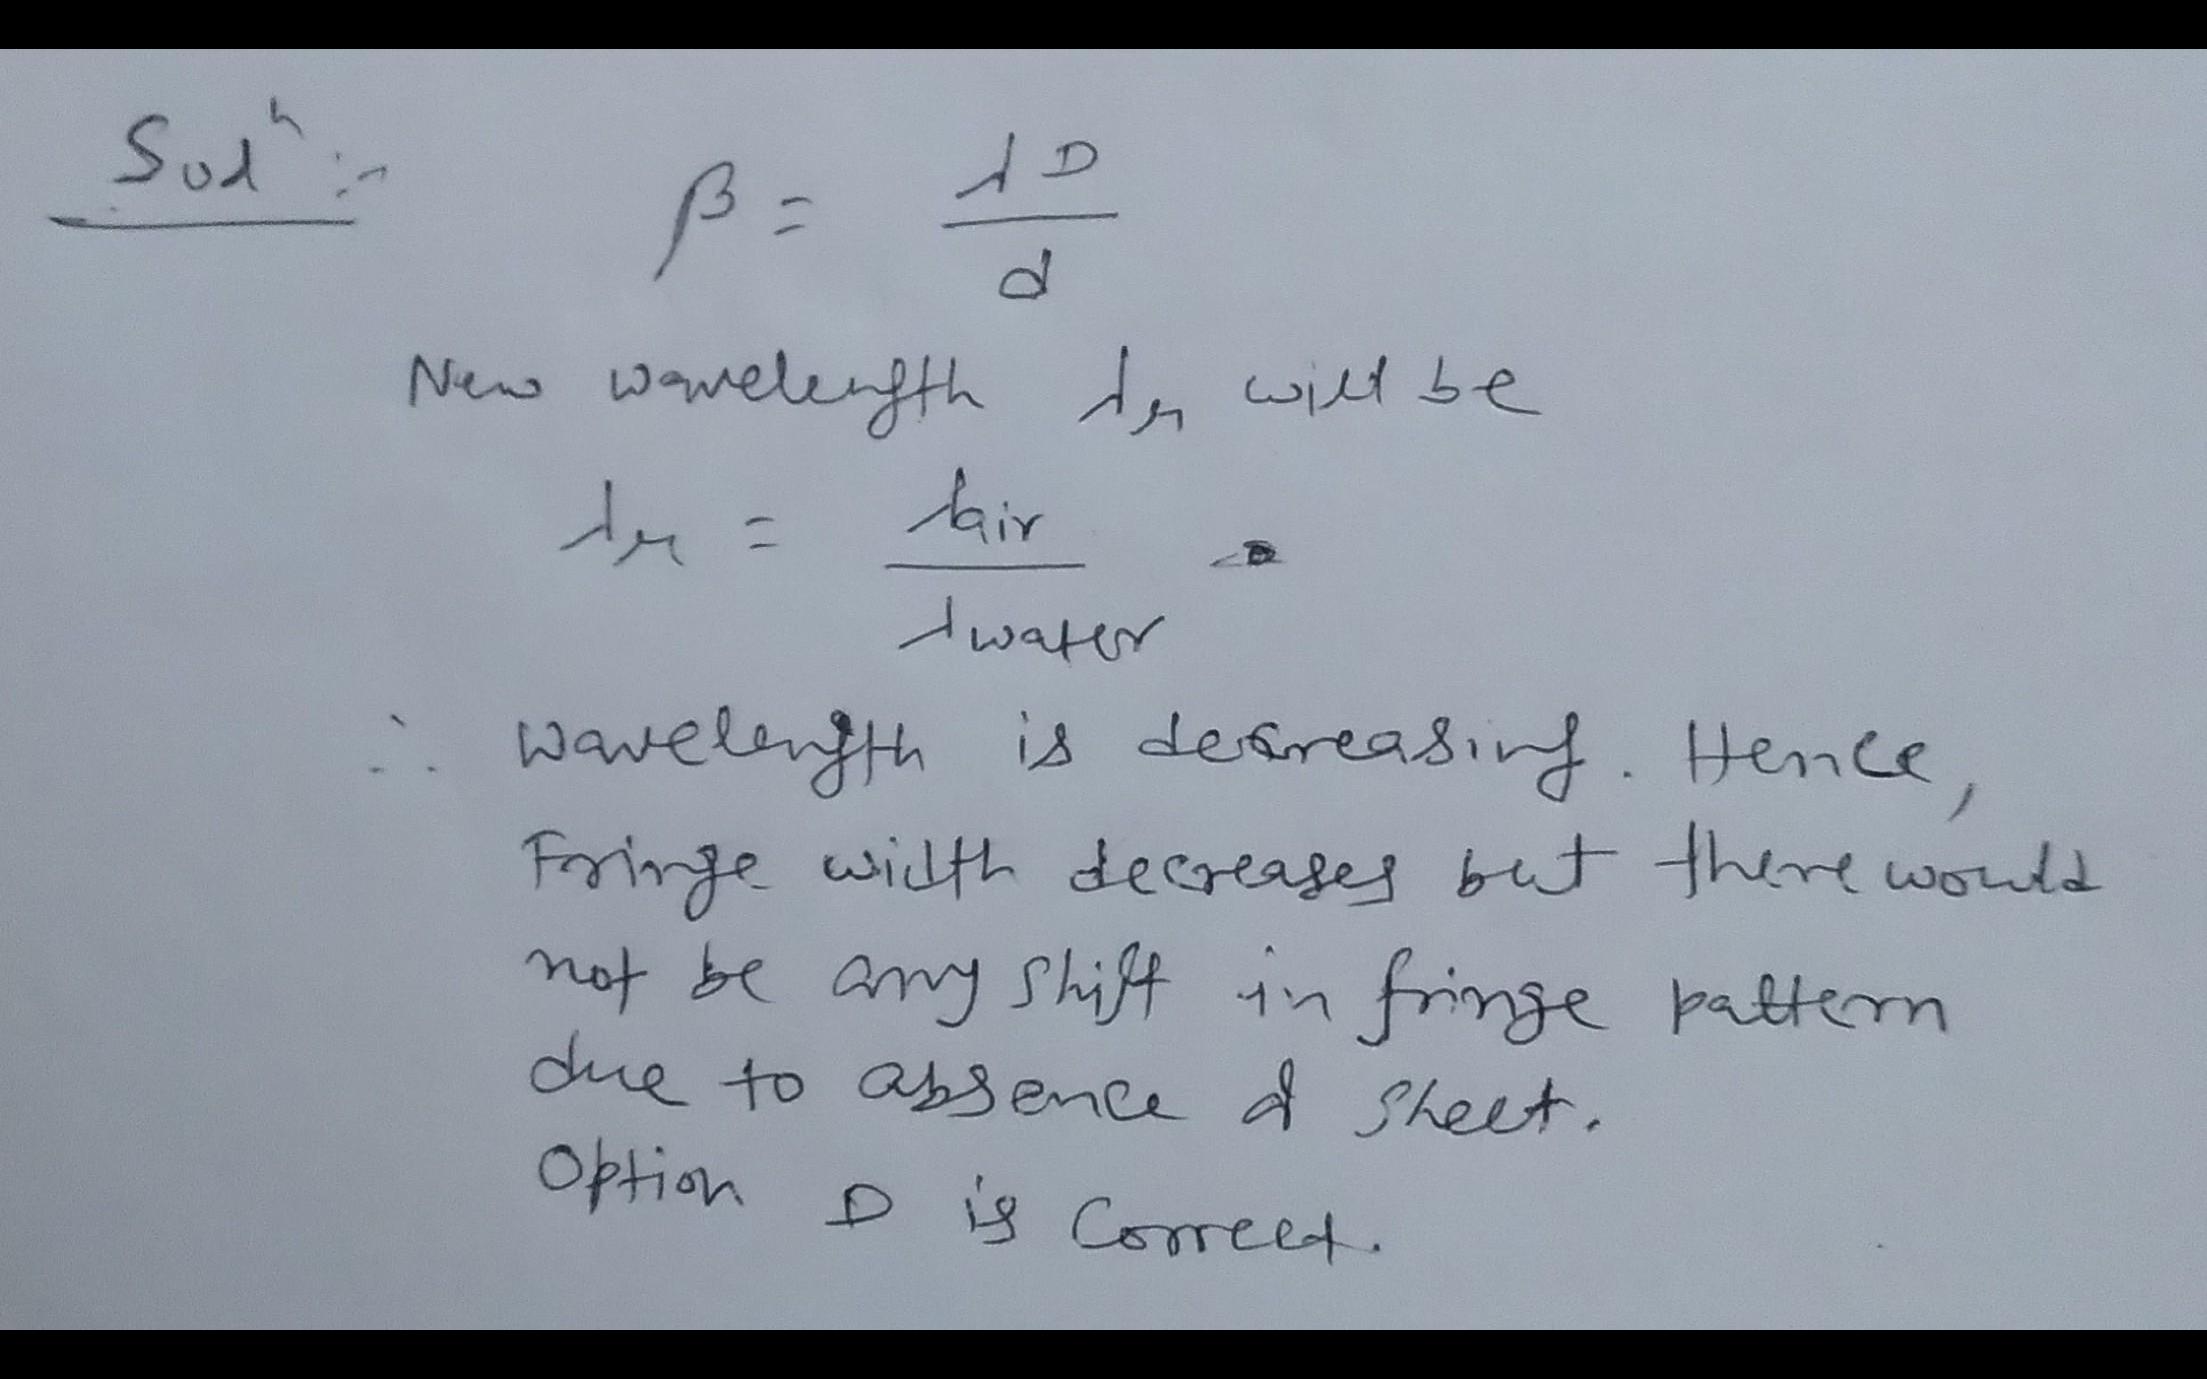 Solⁿ :-
β = λD / d
New wavelength λμ will be
λμ = λair / λwater
∴ wavelength is decreasing. Hence,
Fringe width decreases but there would
not be any shift in fringe pattern
due to absence of sheet.
Option D is correct.